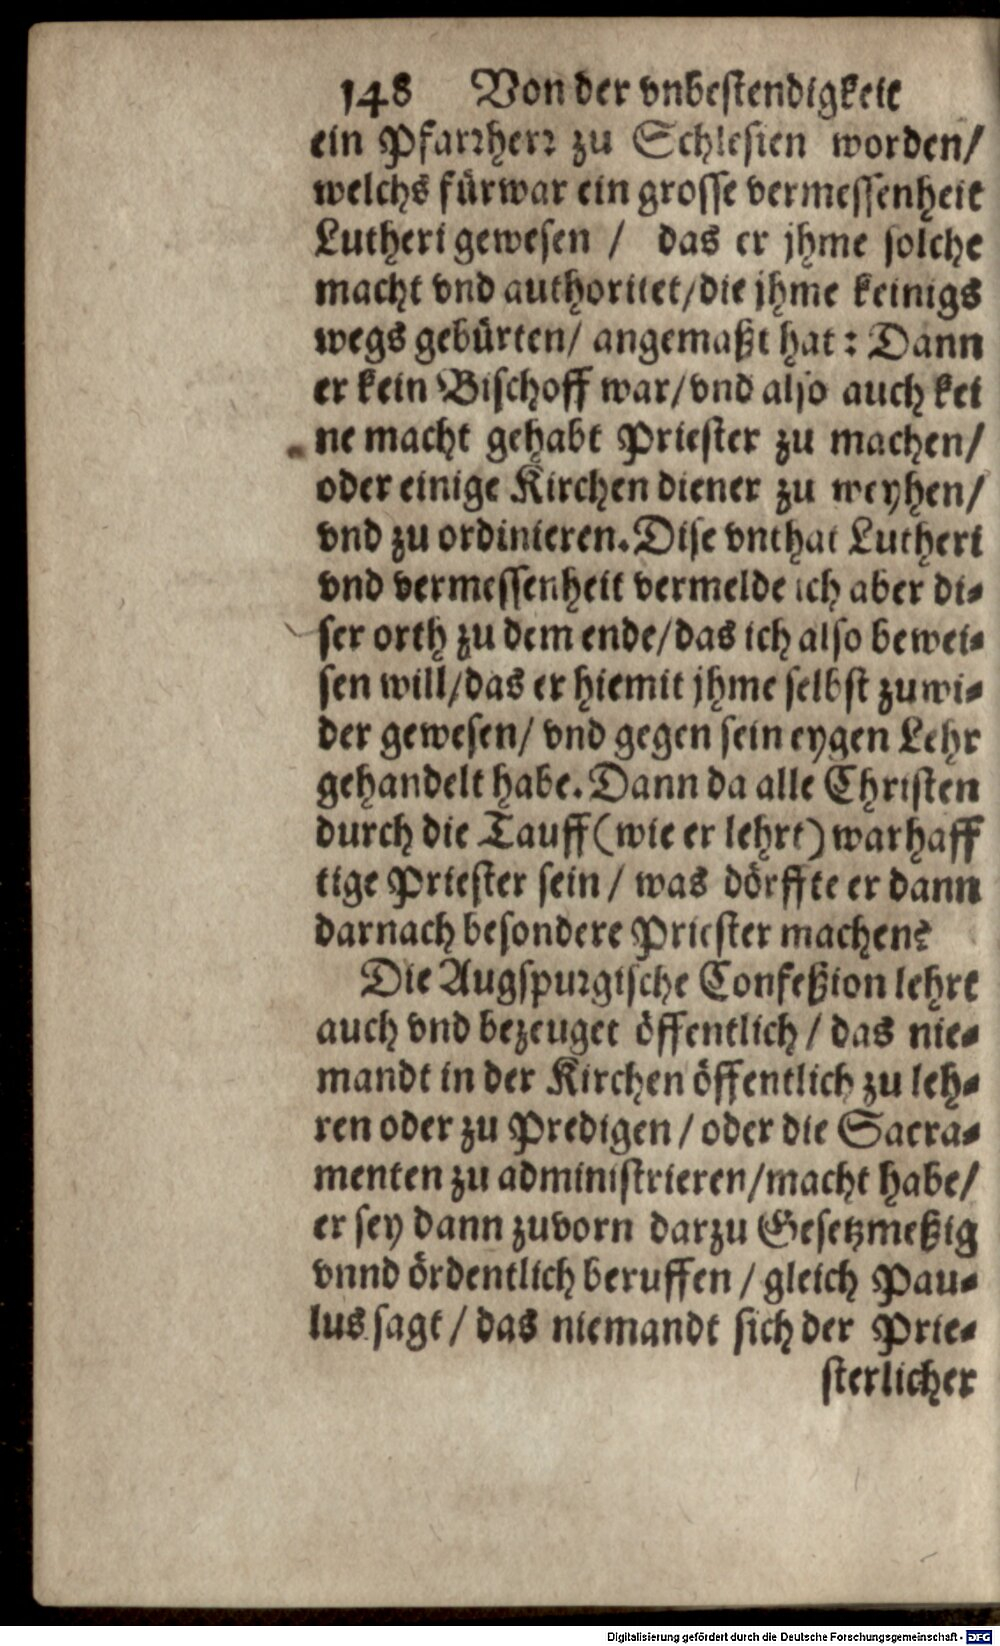 148 Von der vnbestendigkeit
ein Pfarrherr zu Schlesien worden/
welchs fürwar ein grosse vermessenheit
Lutheri gewesen / das er jhme solche
macht vnd authoritet/die jhme keinigs
wegs gebürten/ angemaßt hat: Dann
er kein Bischoff war/vnd also auch kei
ne macht gehabt Priester zu machen/
oder einige Kirchen diener zu weyhen/
vnd zu ordinieren. Dise vnthat Lutheri
vnd vermessenheit vermelde ich aber di-
ser orth zu dem ende/das ich also bewei-
sen will/das er hiemit jhme selbst zuwi-
der gewesen/ vnd gegen sein eygen Lehr
gehandelt habe. Dann da alle Christen
durch die Tauff (wie er lehrt) warhaff
tige Priester sein / was dörffte er dann
darnach besondere Priester machen?
Die Augspurgische Confeßion lehrt
auch vnd bezeuget öffentlich / das nie-
mandt in der Kirchen öffentlich zu leh-
ren oder zu Predigen / oder die Sacra-
menten zu administrieren/macht habe/
er sey dann zuvorn darzu Gesetzmeßig
vnnd ördentlich beruffen / gleich Pau-
lus sagt / das niemandt sich der Prie-
sterlicher
Digitalisierung gefördert durch die Deutsche Forschungsgemeinschaft - DFG